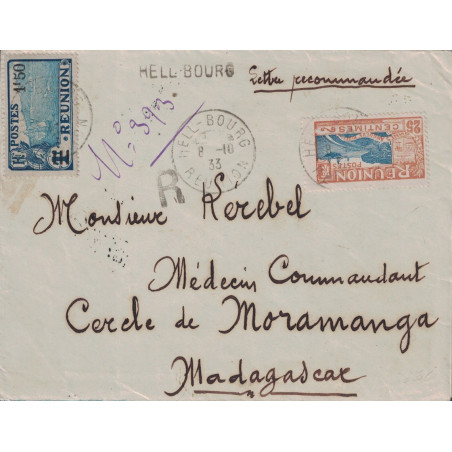 HELL-BOURG
Lettre recommandée
POSTES 1F50
RÉUNION
N° 393
HELL-BOURG
8 -10
33
RÉUNION
R
25
CENTIMES
POSTES
RÉUNION
Monsieur Kérebel
Médecin Commandant
Cercle de Moramanga
Madagascar